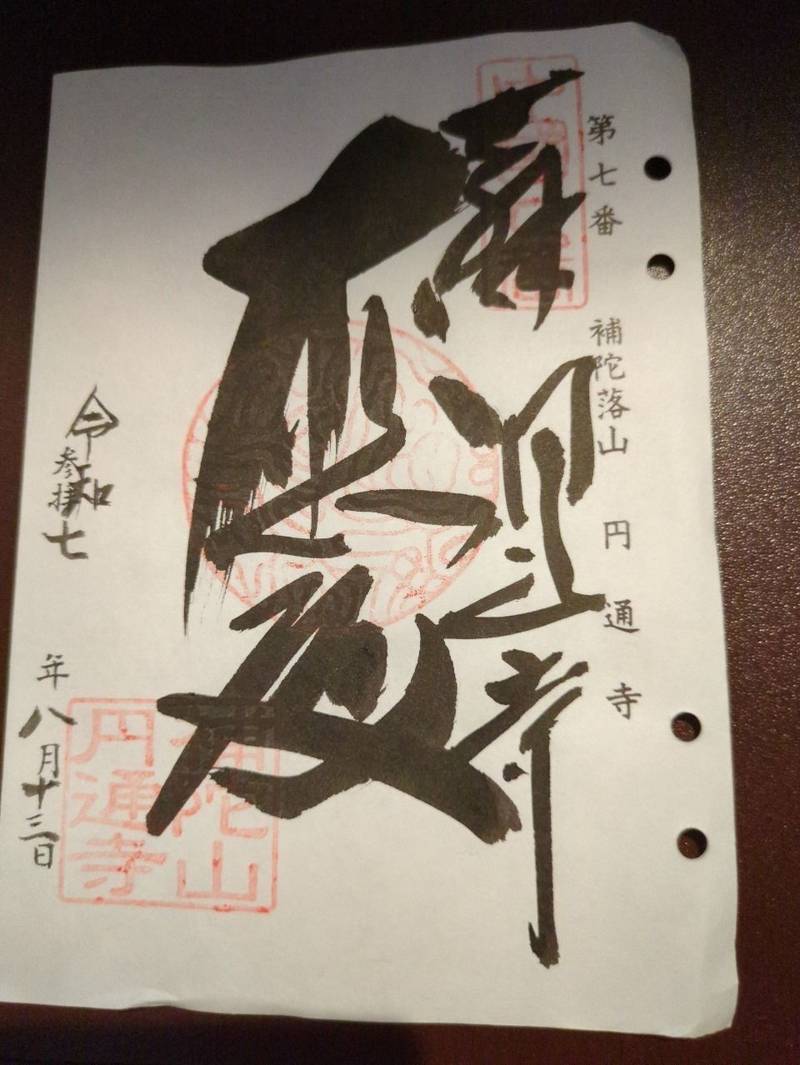 第七番 補陀落山 円通寺
円通寺
大悲殿
令和七年八月十三日
参拝
補陀山
円通寺